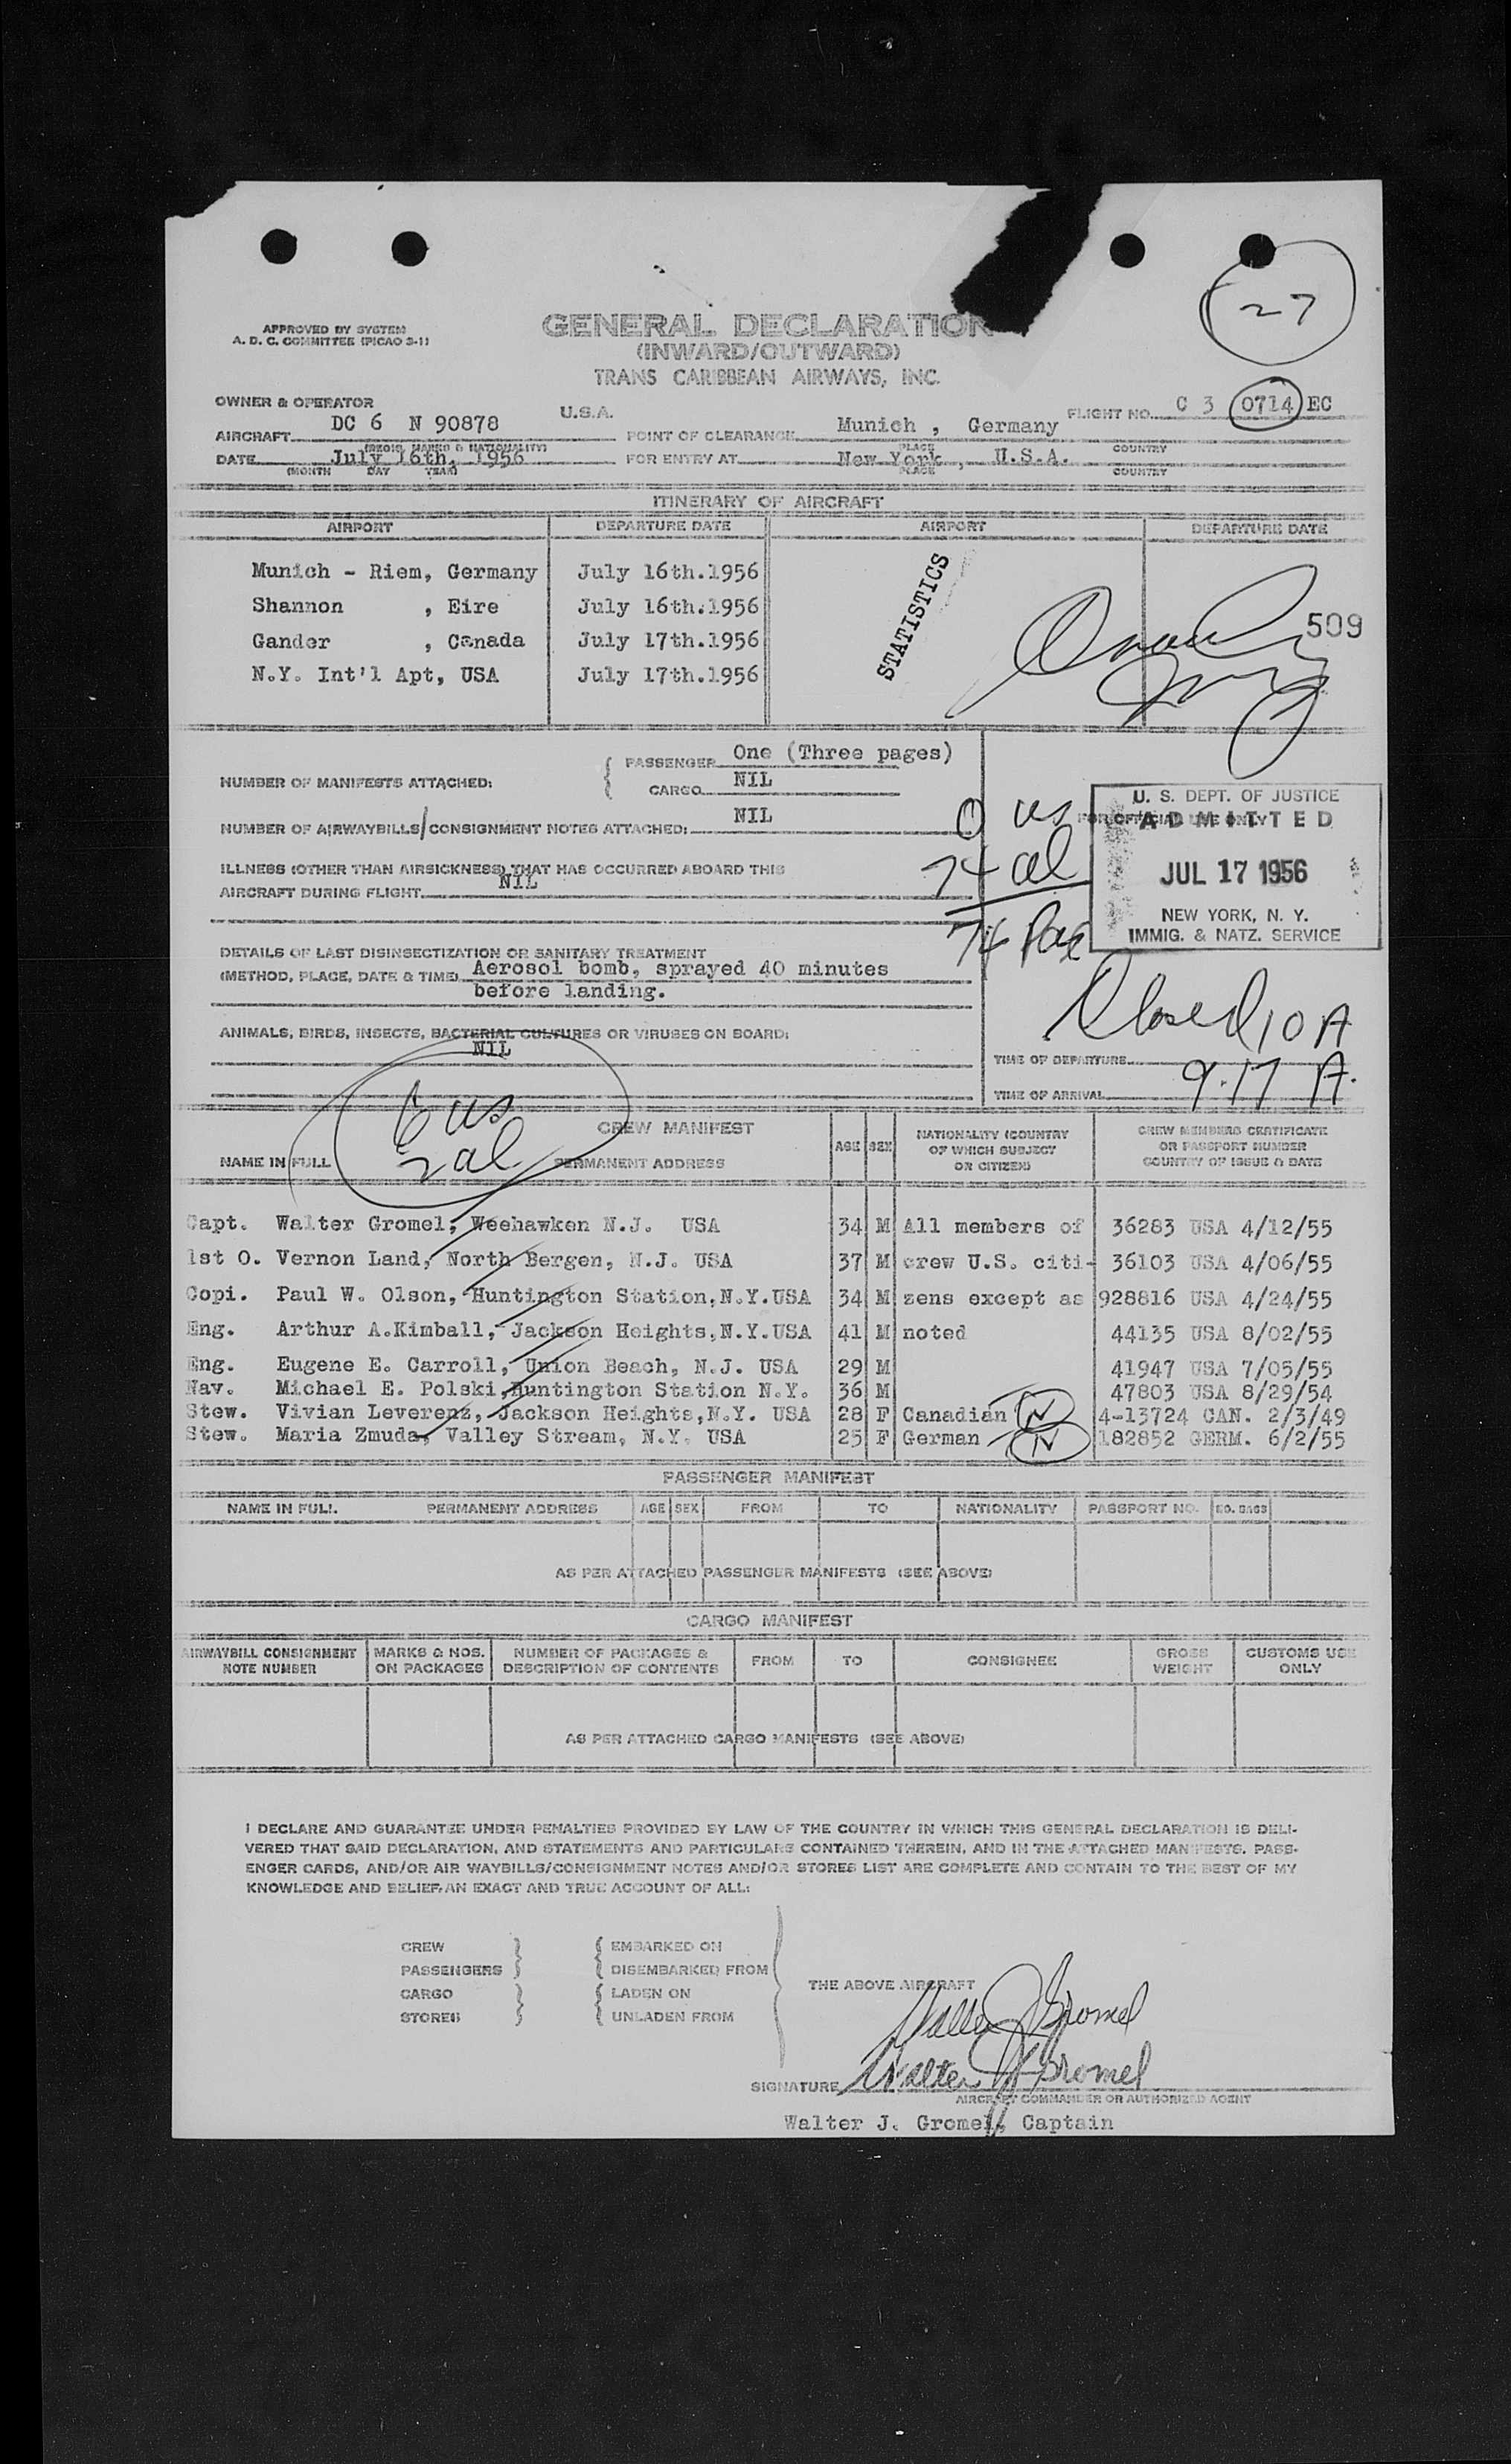 27
APPROVED BY SYSTEM
A. D. C. COMMITTEE (PICAO 3-1)
GENERAL DECLARATION
(INWARD/OUTWARD)
TRANS CARIBBEAN AIRWAYS, INC.
OWNER & OPERATOR U.S.A. FLIGHT NO. C 3 0714 EC
AIRCRAFT DC 6 N 90878 POINT OF CLEARANCE Munich , Germany
(REGIS. MARKS & NATIONALITY) PLACE COUNTRY
DATE July 16th, 1956 FOR ENTRY AT New York , U.S.A.
(MONTH DAY YEAR) PLACE COUNTRY
ITINERARY OF AIRCRAFT
AIRPORT DEPARTURE DATE AIRPORT DEPARTURE DATE
Munich - Riem, Germany July 16th.1956
Shannon , Eire July 16th.1956
Gander , Canada July 17th.1956
N.Y. Int'l Apt, USA July 17th.1956
STATISTICS
509
NUMBER OF MANIFESTS ATTACHED: { PASSENGER One (Three pages)
CARGO NIL
NUMBER OF AIRWAYBILLS/CONSIGNMENT NOTES ATTACHED: NIL
ILLNESS (OTHER THAN AIRSICKNESS) THAT HAS OCCURRED ABOARD THIS
AIRCRAFT DURING FLIGHT NIL
DETAILS OF LAST DISINSECTIZATION OR SANITARY TREATMENT
(METHOD, PLACE, DATE & TIME) Aerosol bomb, sprayed 40 minutes
before landing.
ANIMALS, BIRDS, INSECTS, BACTERIAL CULTURES OR VIRUSES ON BOARD:
NIL
0 us
74 al
74 Pax
FOR OFFICIAL USE ONLY
U. S. DEPT. OF JUSTICE
ADMITTED
JUL 17 1956
NEW YORK, N. Y.
IMMIG. & NATZ. SERVICE
Closed 10 A
TIME OF DEPARTURE
TIME OF ARRIVAL 9.17 A.
6 us
2 al
CREW MANIFEST
NAME IN FULL PERMANENT ADDRESS AGE SEX NATIONALITY (COUNTRY OF WHICH SUBJECT OR CITIZEN) CREW MEMBERS CERTIFICATE OR PASSPORT NUMBER COUNTRY OF ISSUE & DATE
Capt. Walter Gromel, Weehawken N.J. USA 34 M All members of 36283 USA 4/12/55
1st O. Vernon Land, North Bergen, N.J. USA 37 M crew U.S. citi- 36103 USA 4/06/55
Copi. Paul W. Olson, Huntington Station,N.Y.USA 34 M zens except as 928816 USA 4/24/55
Eng. Arthur A.Kimball, Jackson Heights,N.Y.USA 41 M noted 44135 USA 8/02/55
Eng. Eugene E. Carroll, Union Beach, N.J. USA 29 M 41947 USA 7/05/55
Nav. Michael E. Polski,Huntington Station N.Y. 36 M 47803 USA 8/29/54
Stew. Vivian Leverenz, Jackson Heights,N.Y. USA 28 F Canadian N 4-13724 CAN. 2/3/49
Stew. Maria Zmuda, Valley Stream, N.Y. USA 25 F German N 182852 GERM. 6/2/55
PASSENGER MANIFEST
NAME IN FULL PERMANENT ADDRESS AGE SEX FROM TO NATIONALITY PASSPORT NO. NO. BAGS
AS PER ATTACHED PASSENGER MANIFESTS (SEE ABOVE)
CARGO MANIFEST
AIRWAYBILL CONSIGNMENT NOTE NUMBER MARKS & NOS. ON PACKAGES NUMBER OF PACKAGES & DESCRIPTION OF CONTENTS FROM TO CONSIGNEE GROSS WEIGHT CUSTOMS USE ONLY
AS PER ATTACHED CARGO MANIFESTS (SEE ABOVE)
I DECLARE AND GUARANTEE UNDER PENALTIES PROVIDED BY LAW OF THE COUNTRY IN WHICH THIS GENERAL DECLARATION IS DELI-
VERED THAT SAID DECLARATION, AND STATEMENTS AND PARTICULARS CONTAINED THEREIN, AND IN THE ATTACHED MANIFESTS, PASS-
ENGER CARDS, AND/OR AIR WAYBILLS/CONSIGNMENT NOTES AND/OR STORES LIST ARE COMPLETE AND CONTAIN TO THE BEST OF MY
KNOWLEDGE AND BELIEF, AN EXACT AND TRUE ACCOUNT OF ALL:
CREW } { EMBARKED ON
PASSENGERS } { DISEMBARKED FROM
CARGO } { LADEN ON
STORES } { UNLADEN FROM
THE ABOVE AIRCRAFT
Walter J Gromel
SIGNATURE Walter J Gromel
AIRCRAFT COMMANDER OR AUTHORIZED AGENT
Walter J. Gromel, Captain